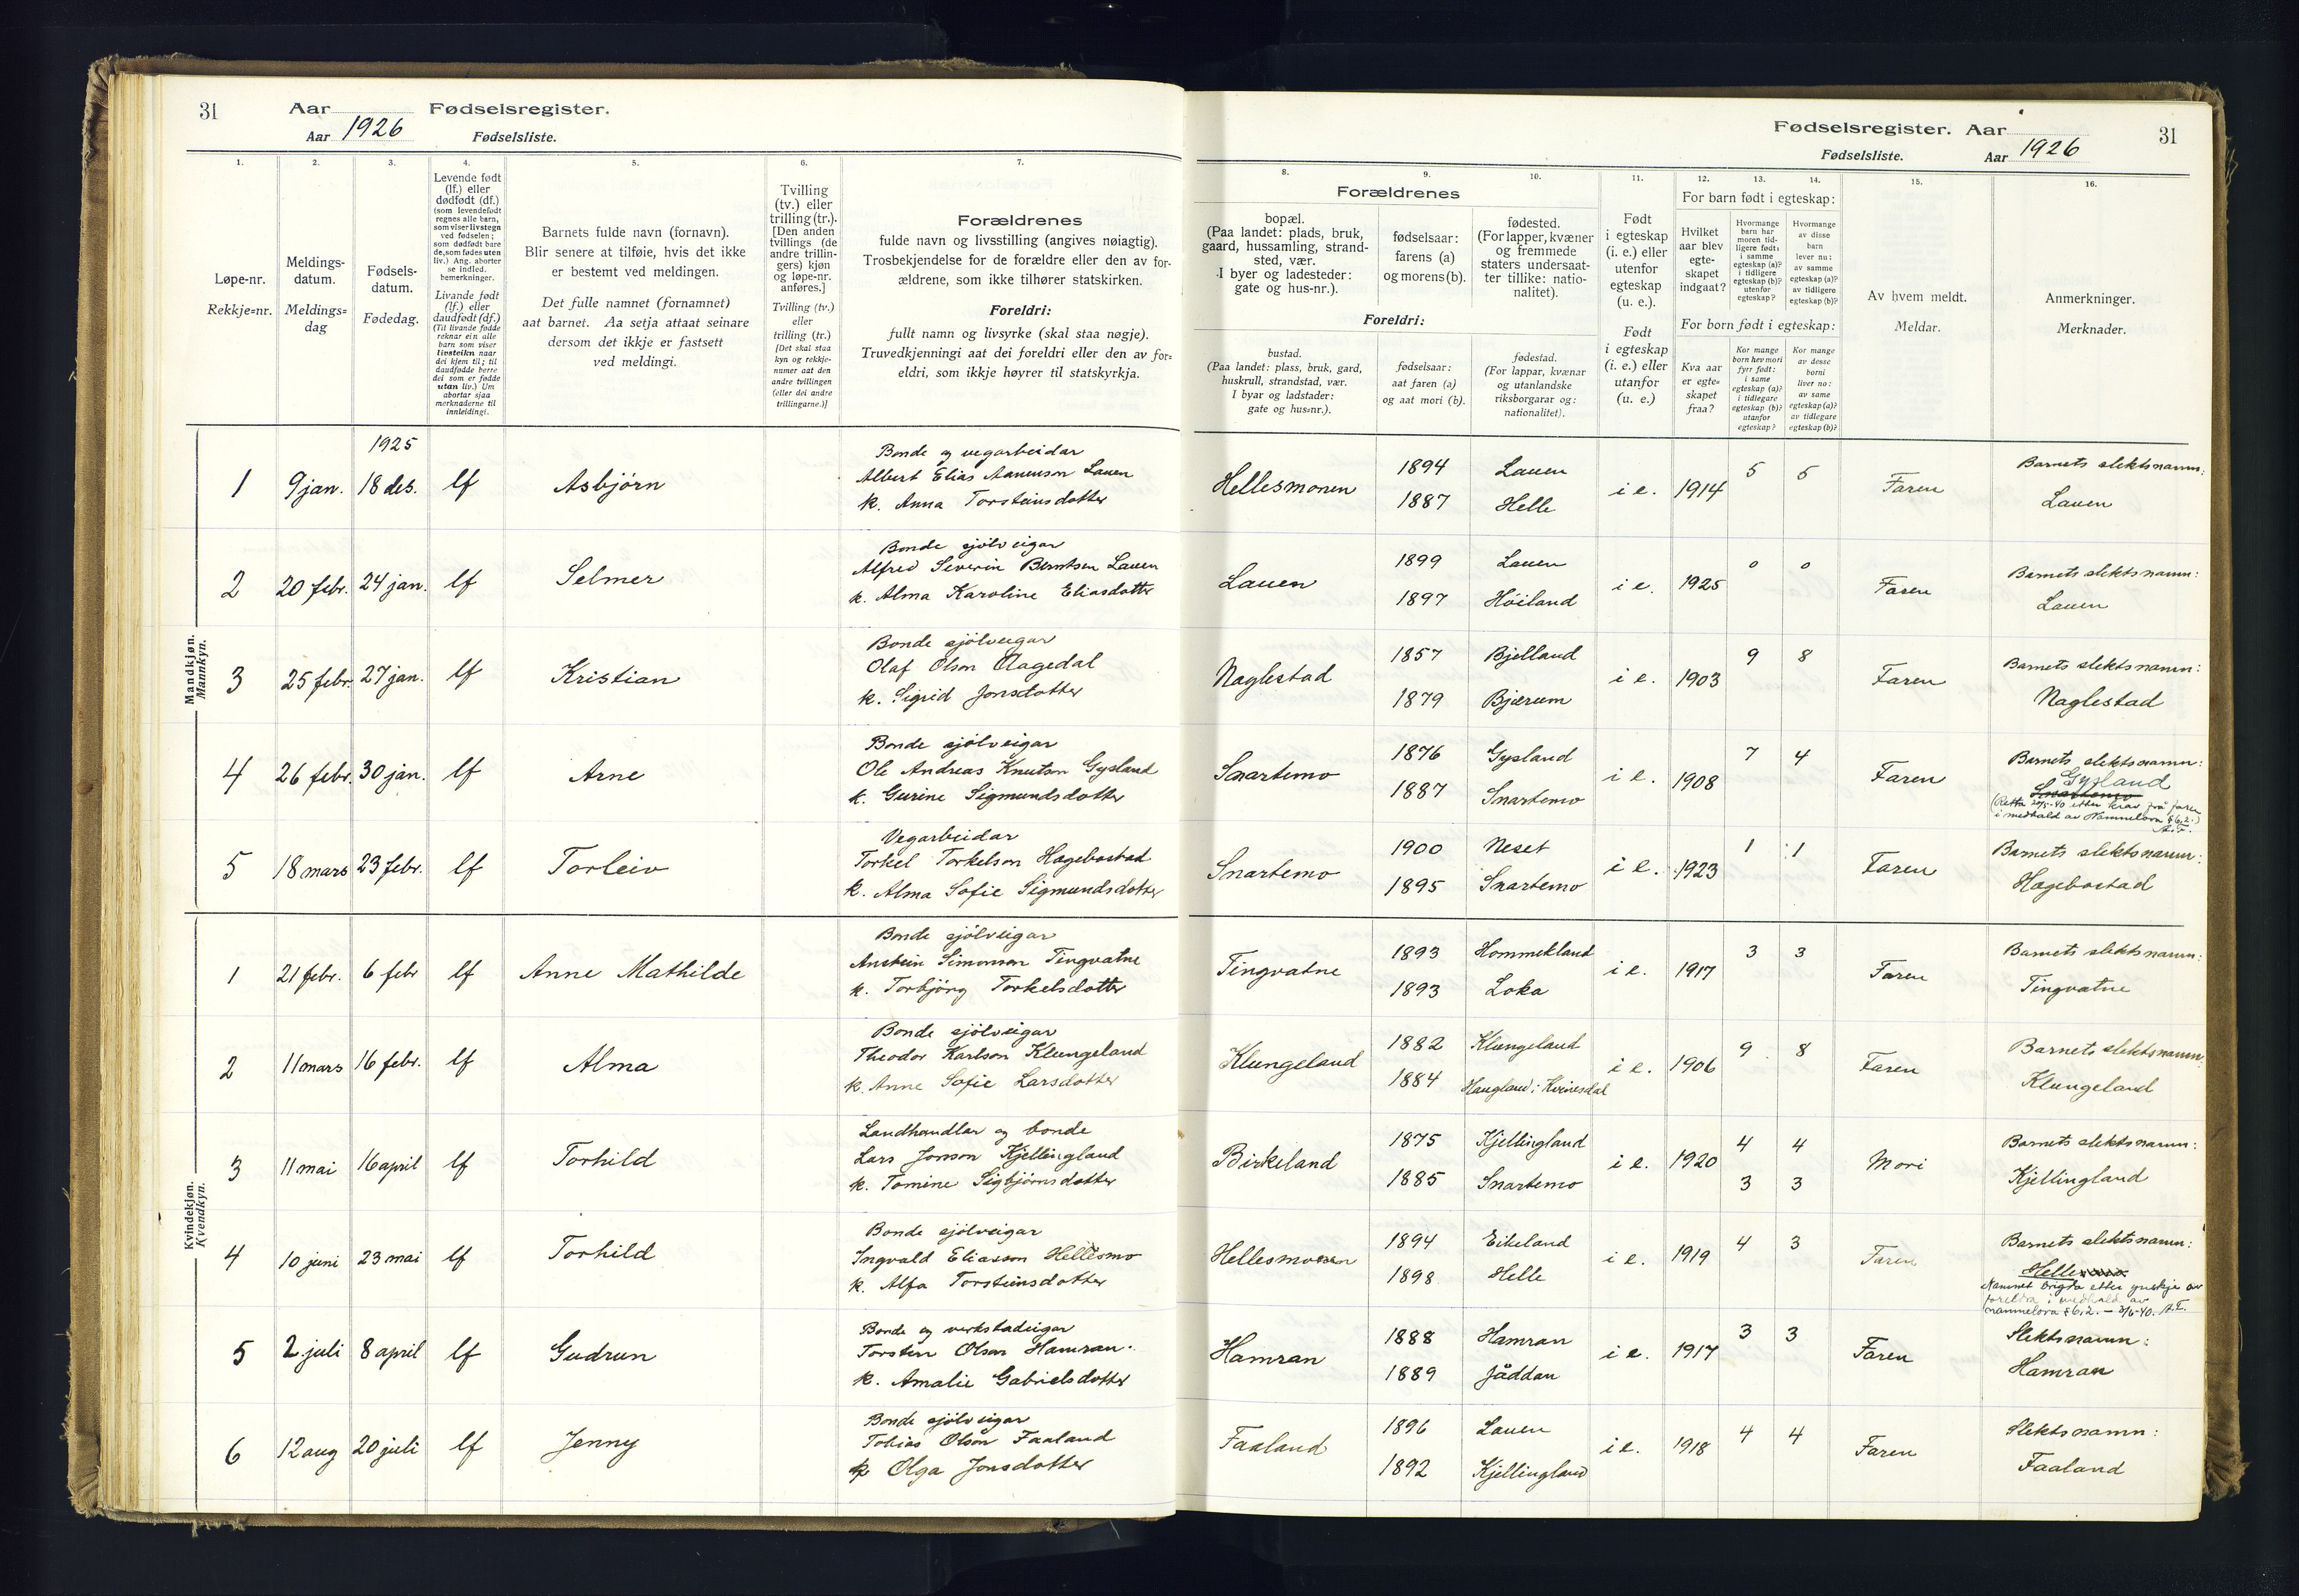 31
Aar
Fødselsregister.
Aar 1926
Fødselsliste.
1.
2.
3.
4.
5.
6.
7.
Løpe-nr.
Rekkje=nr.
Meldings-
datum.
Meldings=
dag
Fødsels-
datum.
Fødedag.
Levende født
(lf.) eller
dødfødt (df.)
(som levendefødt
regnes alle barn,
som viser livstegn
ved fødselen;
som dødfødt bare
de, som fødes uten
liv.) Ang. aborter
se indled.
bemerkninger.
Livande født
(lf.) eller
daudfødt (df.)
(Til livande fødde
reknar ein alle
barn som viser
livsteikn naar
dei kjem til; til
daudfødde berre
dei som er fødde
utan liv.) Um
abortar sjaa
merknaderne til
innleidingi.
Barnets fulde navn (fornavn).
Blir senere at tilføie, hvis det ikke
er bestemt ved meldingen.
Det fulle namnet (fornamnet)
aat barnet. Aa setja attaat seinare
dersom det ikkje er fastsett
ved meldingi.
Tvilling
(tv.) eller
trilling (tr.).
[Den anden
tvillings (de
andre trillin-
gers) kjøn
og løpe-nr.
anføres.]
Tvilling (tv.)
eller
trilling (tr.)
[Det skal staa
kyn og rekkje-
numer aat den
andre tvillingen
(eller dei andre
trillingarne.)]
Forældrenes
fulde navn og livsstilling (angives nøiagtig).
Trosbekjendelse for de forældre eller den av for-
ældrene, som ikke tilhører statskirken.
Foreldri:
fullt namn og livsyrke (skal staa nøgje).
Truvedkjenningi aat dei foreldri eller den av for=
eldri, som ikkje høyrer til statskyrkja.
Fødselsregister. Aar
31
Fødselsliste.
Aar 1926
8.
9.
10.
11.
12.
13.
14.
15.
16.
Forældrenes
bopæl.
(Paa landet: plads, bruk,
gaard, hussamling, strand-
sted, vær.
I byer og ladesteder:
gate og hus-nr.).
fødselsaar:
farens (a)
og morens (b).
fødested.
(For lapper, kvæner
og fremmede
staters undersaat-
ter tillike: natio-
nalitet).
Foreldri:
bustad.
(Paa landet: plass, bruk, gard,
huskrull, strandstad, vær.
I byar og ladstader:
gate og hus=nr.).
fødselsaar:
aat faren (a)
og aat mori (b).
fødestad.
(For lappar, kvænar
og utanlandske
riksborgarar og:
nationalitet).
Født
i egteskap
(i. e.) eller
utenfor
egteskap
(u. e.).
Født
i egteskap
(i. e.) eller
utanfor
(u. e.)
For barn født i egteskap:
Hvilket
aar blev
egte-
skapet
indgaat?
Hvormange
barn har
moren tid-
ligere født:
i samme
egteskap (a)?
i tidligere
egteskap (b)?
utenfor
egteskap?
Hvormange
av disse
barn
lever nu:
av samme
egteskap (a)?
av tidligere
egteskap (b)?
For born født i egteskap:
Kva aar
er egte=
skapet
fraa?
Kor mange
born hev mori
fyrr født:
i same
egteskap (a)?
i tidlegare
egteskap (b)?
utanfor
egteskap?
Kor mange
av desse
borni
liver no:
av same
egteskap (a)?
av tidlegare
egteskap (b)?
Av hvem meldt.
Meldar.
Anmerkninger.
Merknader.
Mandkjøn.
Mannkyn.
1925
1 9 jan. 18 des. lf Asbjørn
Bonde og vegarbeidar
Albert Elias Aanenson Lauen
k. Anna Torsteinsdotter
Hellesmonen 1894 Lauen 1887 Helle i e. 1914 5 5 Faren
Barnets slektsnamn:
Lauen
2 20 febr. 24 jan. lf Selmer
Bonde sjölveigar
Alfred Severin Berntsen Lauen
k. Alma Karoline Eliasdotter
Lauen 1899 Lauen 1897 Höiland i e. 1925 0 0 Faren
Barnets slektsnamn:
Lauen
3 25 febr. 27 jan. lf Kristian
Bonde sjölveigar
Olaf Olson Aagedal
k. Sigrid Jonsdotter
Naglestad 1857 Bjelland 1879 Bjærum i e. 1903 9 8 Faren
Barnets slektsnamn:
Naglestad
4 26 febr. 30 jan. lf Arne
Bonde sjölveigar
Ole Andreas Knutson Gysland
k. Gurine Sigmundsdotter
Snartemo 1876 Gysland 1887 Snartemo i e. 1908 7 4 Faren
Barnets slektsnamn:
Gysland
Snartemo
(Retta 20/5-40 etter krav frå faren
i medhald av Namnelova § 6,2.)
A.T.
5 18 mars 23 febr. lf Torleiv
Vegarbeidar
Torkel Torkelson Hægebostad
k. Alma Sofie Sigmundsdotter
Snartemo 1900 Neset 1895 Snartemo i e. 1923 1 1 Faren
Barnets slektsnamn:
Hægebostad
Kvindekjøn.
Kvendkyn.
1 21 febr. 6 febr lf Anne Mathilde
Bonde sjölveigar
Anstein Simonson Tingvatne
k. Torbjörg Torkelsdotter
Tingvatne 1893 Hommekland 1893 Loka i e. 1917 3 3 Faren
Barnets slektsnamn:
Tingvatne
2 11 mars 16 febr. lf Alma
Bonde sjölveigar
Theodor Karlson Klungeland
k. Anne Sofie Larsdotter
Klungeland 1882 Klungeland 1884 Haugland i Kvinesdal i e. 1906 9 8 Faren
Barnets slektsnamn:
Klungeland
3 11 mai 16 april lf Torhild
Landhandlar og bonde
Lars Jonson Kjellingland
k. Tomine Sigbjörnsdotter
Birkeland 1875 Kjellingland 1885 Snartemo i e. 1920 4 4 3 3 Mori
Barnets slektsnamn:
Kjellingland
4 10 juni 23 mai lf Torhild
Bonde sjölveigar
Ingvald Eliasson Hellesmo
k. Alfa Torsteinsdotter
Hellesmonen 1894 Eikeland 1898 Helle i e. 1919 4 3 Faren
Barnets slektsnamn:
Helle
Namnet brigta etter ynskje av
foreldra i medhald av
namnelova § 6,2. — 3/6-40. A.T.
5 2 juli 8 april lf Gudrun
Bonde og verkstadeigar
Torstein Olson Hamran.
k. Amalie Gabrielsdotter
Hamran 1888 Hamran 1889 Jåddan i e. 1917 3 3 Faren
Slektsnamn:
Hamran
6 12 aug 20 juli lf Jenny
Bonde sjölveigar
Tobias Olson Faaland
k Olga Jonsdotter
Faaland 1896 Lauen 1892 Kjellingland i e. 1918 4 4 Faren
Slektsnamn:
Faaland